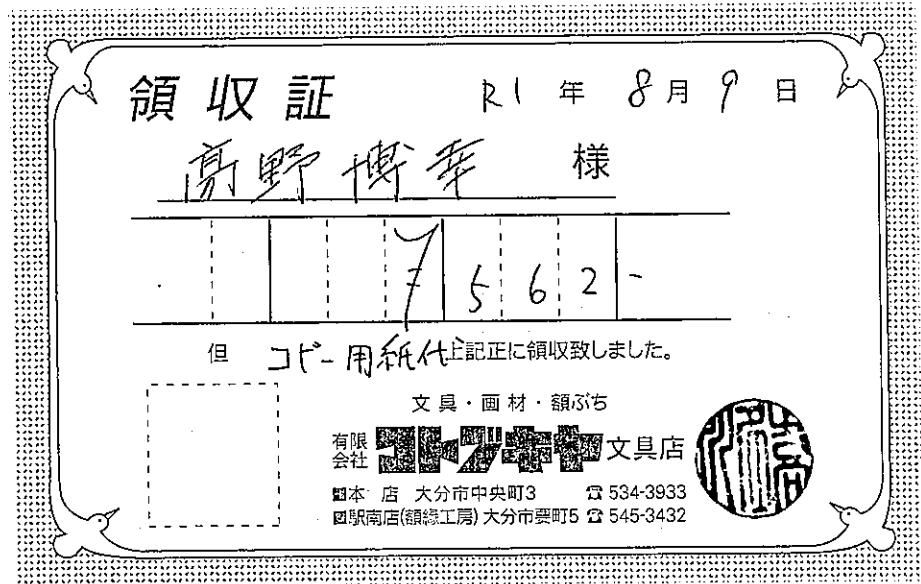 領収証 R1年 8月 9日
髙野博幸 様
¥562-
但 コピー用紙代上記正に領収致しました。
文具・画材・額ぶち
有限会社 コトブキヤ 文具店
本 店 大分市中央町3 ☎ 534-3933
駅南店(額縁工房) 大分市要町5 ☎ 545-3432